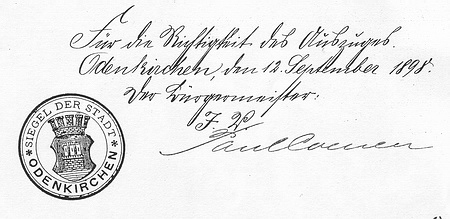 Für die Richtigkeit des Auszuges.
Odenkirchen, den 12. September 1898.
Der Bürgermeister:
SIEGEL DER STADT
* ODENKIRCHEN *